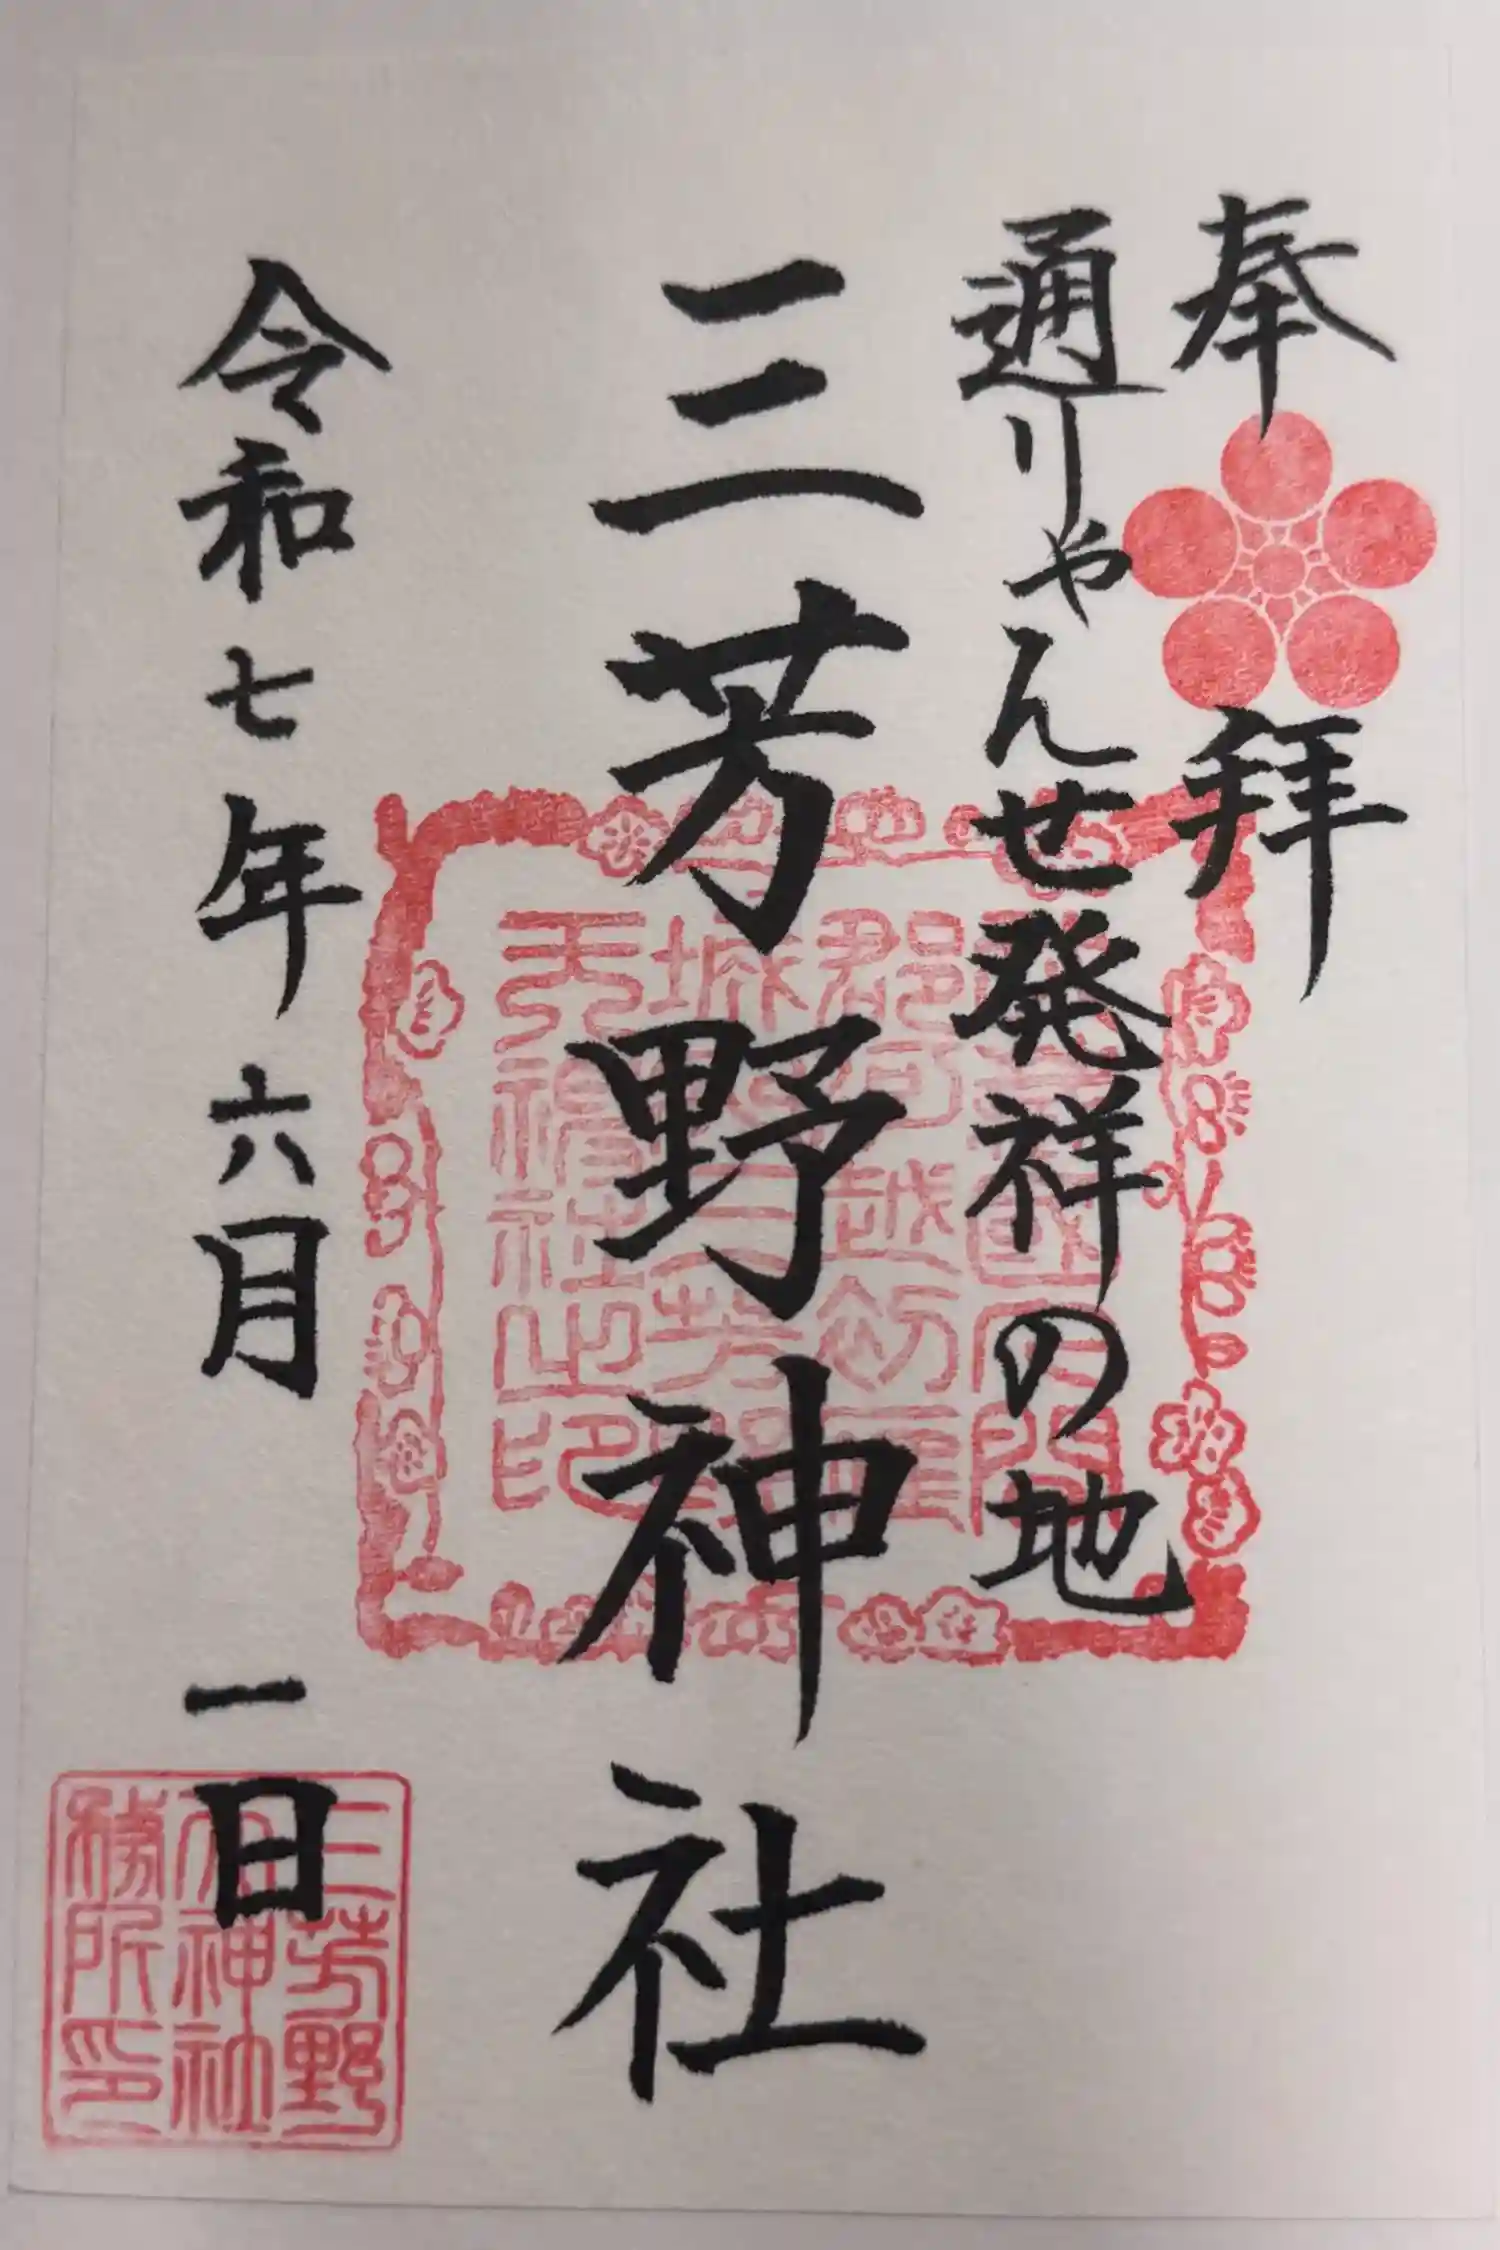 奉拝
通りゃんせ発祥の地
三芳野神社
令和七年六月一日
三芳野
天神社
務所印